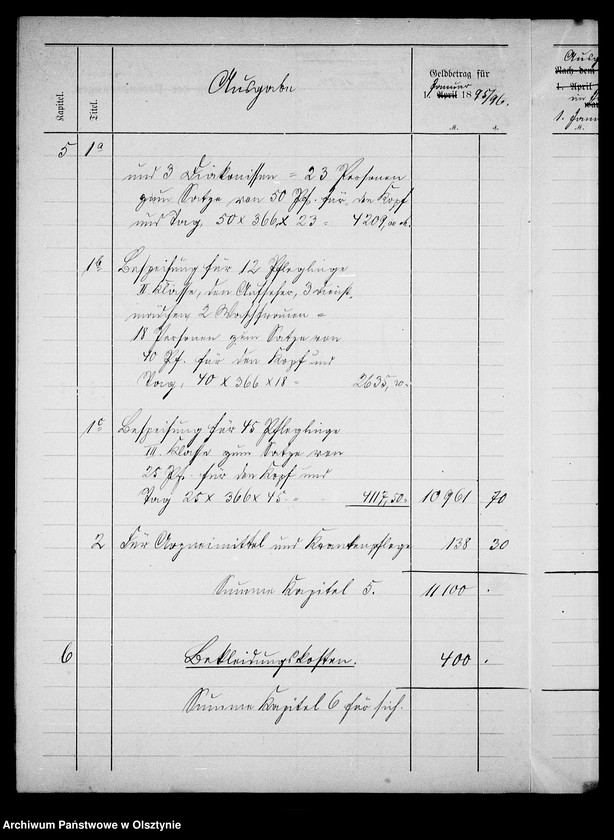 Kapitel.
Titel.
Ausgabe
Geldbetrag für
Januar
1. April 18 95/96.
M.
₰.
5 1a
und 3 Diakonissen = 23 Personen
zum Satze von 50 Pf. für den Kopf
und Tag, 50 x 366 x 23 = 4209, M.
1b Bespeisung für 12 Pfleglinge
II Klasse, den Aufseher, 3 Dienst
mädchen 2 Waschfrauen =
18 Personen zum Satze von
40 Pf. für den Kopf und
Tag, 40 x 366 x 18 = 2635, 20
1c Bespeisung für 45 Pfleglinge
III. Klasse zum Satze von
25 Pf. für den Kopf und
Tag 25 x 366 x 45 = 4117,50 10961 70
2 Für Arzneimittel und Krankenpflege 138 30
Summe Kapitel 5. 11100 .
6 Bekleidungskosten. 400 .
Summe Kapitel 6 für sich.
Ausg
Nach dem
1. April
1. Janu
M.
Archiwum Państwowe w Olsztynie